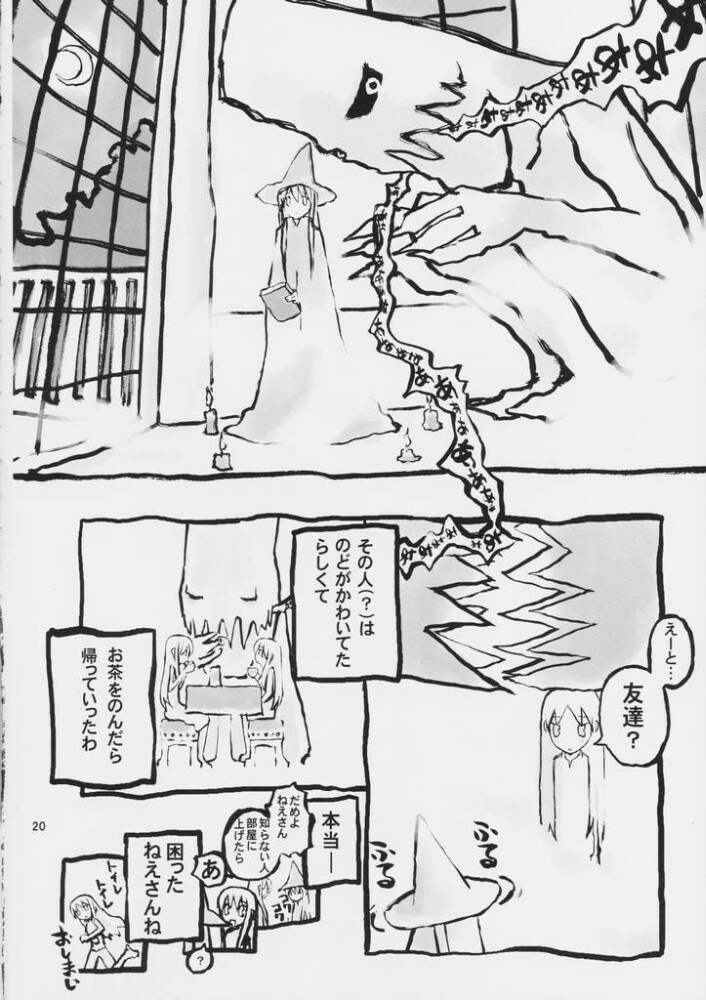 ああああああああああああ
えーと…
友達？
ぷる
ぷる
その人(？)は
のどがかわいてた
らしくて
お茶をのんだら
帰っていったわ
本当―
だめよ
ねえさん
知らない人
部屋に
上げたら
コワ
コワ
あ
？
困った
ねえさんね
トイレ
トイレ
おしまい
20